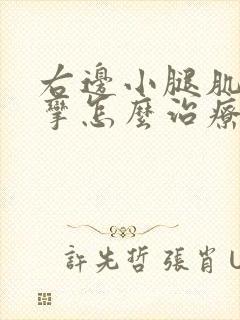 右邊小腿肌
攣怎麼治療
許先哲 張肖 U